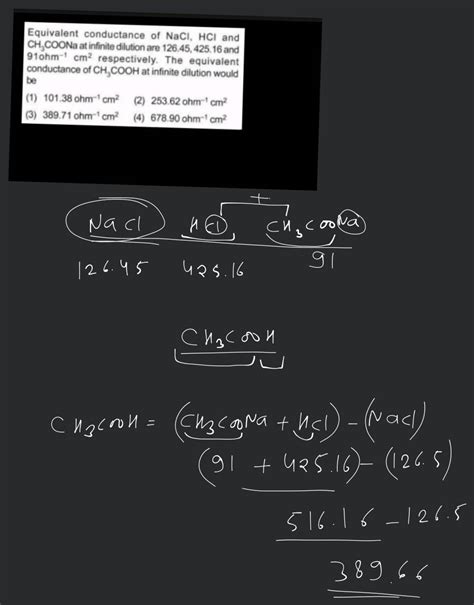 Equivalent conductance of NaCl, HCl and
CH₃COONa at infinite dilution are 126.45, 425.16 and
91ohm⁻¹ cm² respectively. The equivalent
conductance of CH₃COOH at infinite dilution would
be
(1) 101.38 ohm⁻¹ cm² (2) 253.62 ohm⁻¹ cm²
(3) 389.71 ohm⁻¹ cm² (4) 678.90 ohm⁻¹ cm²
+
NaCl HCl CH₃COONa
126.45 425.16 91
CH₃COOH
CH₃COOH = (CH₃COONa + HCl) - (NaCl)
(91 + 425.16) - (126.5)
516.16 - 126.5
389.66